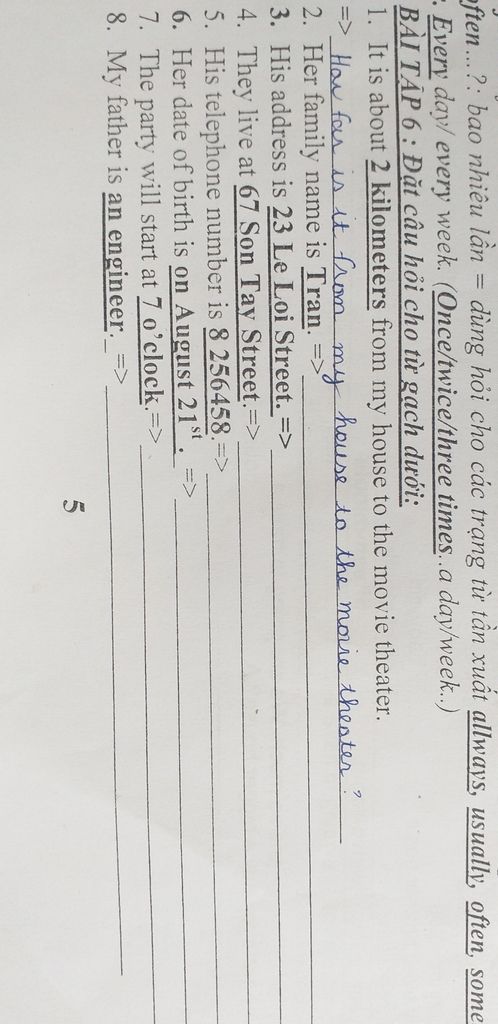 often...?: bao nhiêu lần = dùng hỏi cho các trạng từ tần xuất allways, usually, often, some
. Every day/ every week. (Once/twice/three times..a day/week..)
BÀI TẬP 6 : Đặt câu hỏi cho từ gạch dưới:
1. It is about 2 kilometers from my house to the movie theater.
=> How far is it from my house to the movie theater?
2. Her family name is Tran. =>
3. His address is 23 Le Loi Street. =>
4. They live at 67 Son Tay Street.=>
5. His telephone number is 8 256458.=>
6. Her date of birth is on August 21st . =>
7. The party will start at 7 o'clock.=>
8. My father is an engineer. =>
5